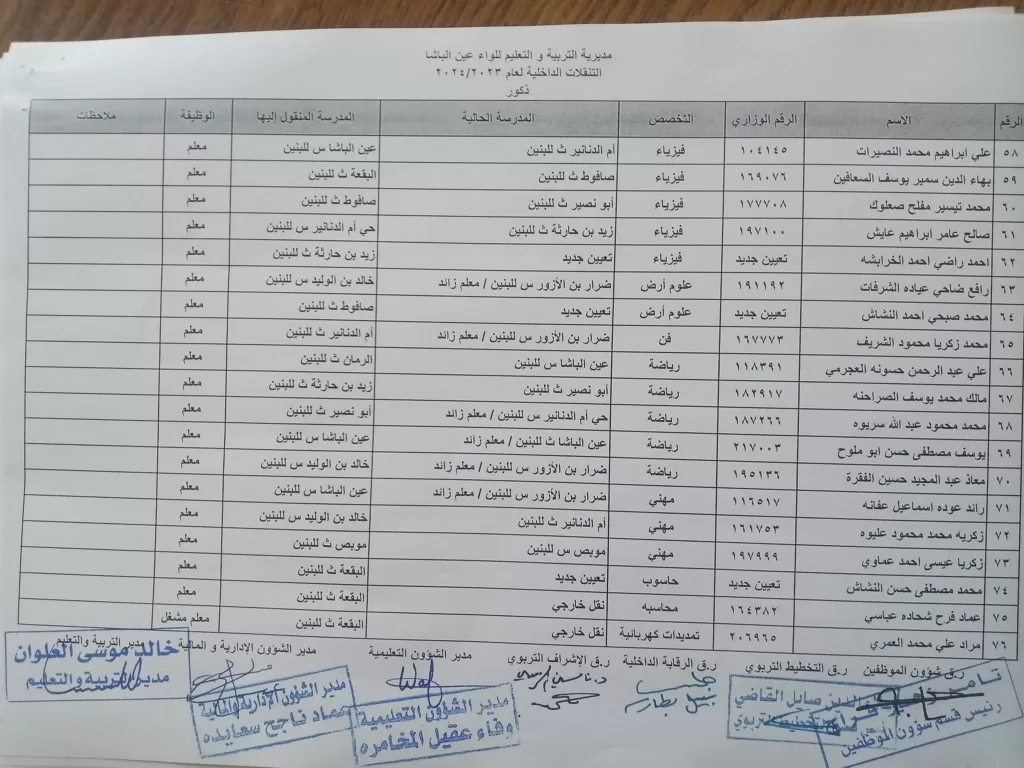 مديرية التربية و التعليم للواء عين الباشا
التنقلات الداخلية لعام ٢٠٢٤/٢٠٢٣
ذكور
الرقم الاسم الرقم الوزاري التخصص المدرسة الحالية المدرسة المنقول إليها الوظيفة ملاحظات
٥٨ علي ابراهيم محمد النصيرات ١٠٤١٤٥ فيزياء أم الدنانير ث للبنين عين الباشا س للبنين معلم
٥٩ بهاء الدين سمير يوسف السعافين ١٦٩٠٧٦ فيزياء صافوط ث للبنين البقعة ث للبنين معلم
٦٠ محمد تيسير مفلح صعلوك ١٧٧٧٠٨ فيزياء أبو نصير ث للبنين صافوط ث للبنين معلم
٦١ صالح عامر ابراهيم عايش ١٩٧١٠٠ فيزياء زيد بن حارثة ث للبنين حي أم الدنانير س للبنين معلم
٦٢ احمد راضي احمد الخرابشه تعيين جديد فيزياء تعيين جديد زيد بن حارثة ث للبنين معلم
٦٣ رافع ضاحي عياده الشرفات ١٩١١٩٢ علوم أرض ضرار بن الأزور س للبنين / معلم زائد خالد بن الوليد س للبنين معلم
٦٤ محمد صبحي احمد النشاش تعيين جديد علوم أرض تعيين جديد صافوط ث للبنين معلم
٦٥ محمد زكريا محمود الشريف ١٦٧٧٧٣ فن ضرار بن الأزور س للبنين / معلم زائد أم الدنانير ث للبنين معلم
٦٦ علي عبد الرحمن حسونه العجرمي ١١٨٣٩١ رياضة عين الباشا س للبنين الرمان ث للبنين معلم
٦٧ مالك محمد يوسف الصراحنه ١٨٢٩١٧ رياضة أبو نصير ث للبنين زيد بن حارثة ث للبنين معلم
٦٨ محمد محمود عبد الله سريوه ١٨٧٢٦٦ رياضة حي أم الدنانير س للبنين / معلم زائد أبو نصير ث للبنين معلم
٦٩ يوسف مصطفى حسن ابو ملوح ٢١٧٠٠٣ رياضة عين الباشا ث للبنين / معلم زائد عين الباشا س للبنين معلم
٧٠ معاذ عبد المجيد حسين الفقرة ١٩٥١٣٦ رياضة ضرار بن الأزور س للبنين / معلم زائد خالد بن الوليد س للبنين معلم
٧١ رائد عوده اسماعيل عفانه ١١٦٥١٧ مهني ضرار بن الأزور س للبنين / معلم زائد عين الباشا س للبنين معلم
٧٢ زكريه محمد محمود عليوه ١٦١٧٥٣ مهني أم الدنانير ث للبنين خالد بن الوليد س للبنين معلم
٧٣ زكريا عيسى احمد عماوي ١٩٧٩٩٩ مهني موبص س للبنين موبص ث للبنين معلم
٧٤ محمد مصطفى حسن النشاش تعيين جديد حاسوب تعيين جديد البقعة ث للبنين معلم
٧٥ عماد فرح شحاده عباسي ١٦٤٣٨٢ محاسبه نقل خارجي البقعة ث للبنين معلم
٧٦ مراد علي محمد العمري ٢٠٦٩٦٥ تمديدات كهربائية نقل خارجي البقعة ث للبنين معلم مشغل
ر.ق شؤون الموظفين ر.ق التخطيط التربوي ر.ق الرقابة الداخلية ر.ق الإشراف التربوي مدير الشؤون التعليمية مدير الشؤون الإدارية و المالية مدير التربية والتعليم
الدين صايل القاضي
رئيس قسم شؤون الموظفين
مدير الشؤون التعليمية
وفاء عقيل المخامره
مدير الشؤون الإدارية والمالية
عماد ناجح سعايده
خالد موسى العلوان
مدير التربية والتعليم